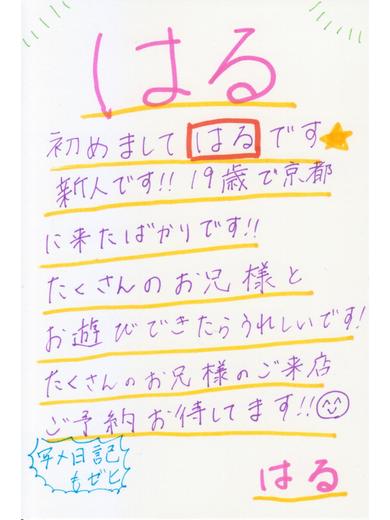 はる
初めまして はる です
新人です!! 19歳で京都
に来たばかりです!!
たくさんのお兄様と
お遊びできたらうれしいです!
たくさんのお兄様のご来店
ご予約お待してます!!
写メ日記
もぜひ
はる